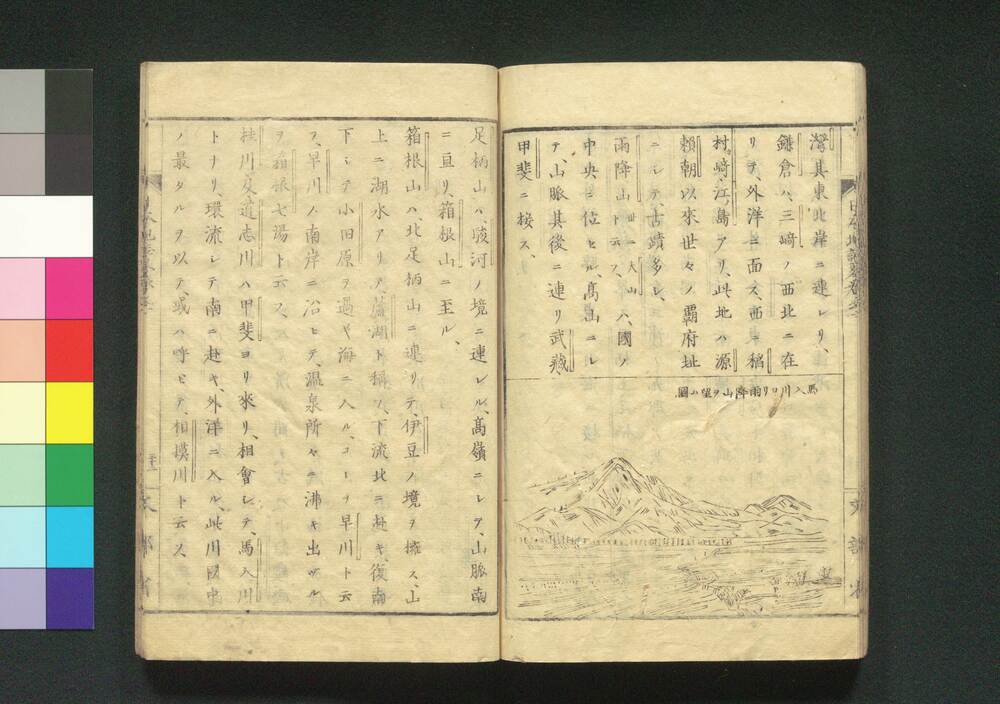 灣其東北岸ニ連レリ、
鎌倉ハ、三﨑ノ西北ニ在
リテ、外洋ニ面ス、西ニ稻
村﨑、江島アリ、此地ハ源
頼朝以來世々ノ覇府址
ニシテ、古蹟多シ、
雨降山 世ニ大山ト云フ、ハ、國ノ
中央ニ位ヒシ、髙山ニシ
テ、山脈其後ニ連リ武藏、
甲斐ニ接ス、
馬入川ヨリ雨降山ヲ望ム圖
足柄山ハ、駿河ノ境ニ連レル、髙嶺ニシテ、山脈南
ニ亘リ、箱根山ニ至ル、
箱根山ハ、北足柄山ニ連リテ、伊豆ノ境ヲ擁ス、山
上ニ湖水アリテ蘆湖ト稱ス、下流北ニ赴キ、復南
下シテ小田原ヲ過キ海ニ入ル、コレヲ早川ト云
フ、早川ノ南岸ニ沿ヒテ、温泉所々ニ沸キ出ヅル
ヲ箱根七湯ト云フ、
桂川、及道志川ハ甲斐ヨリ來リ、相會シテ、馬入川
トナリ、環流シテ南ニ赴キ、外洋ニ入ル、此川國中
ノ最タルヲ以テ、或ハ呼ビテ、相摸川ト云フ、
文部省